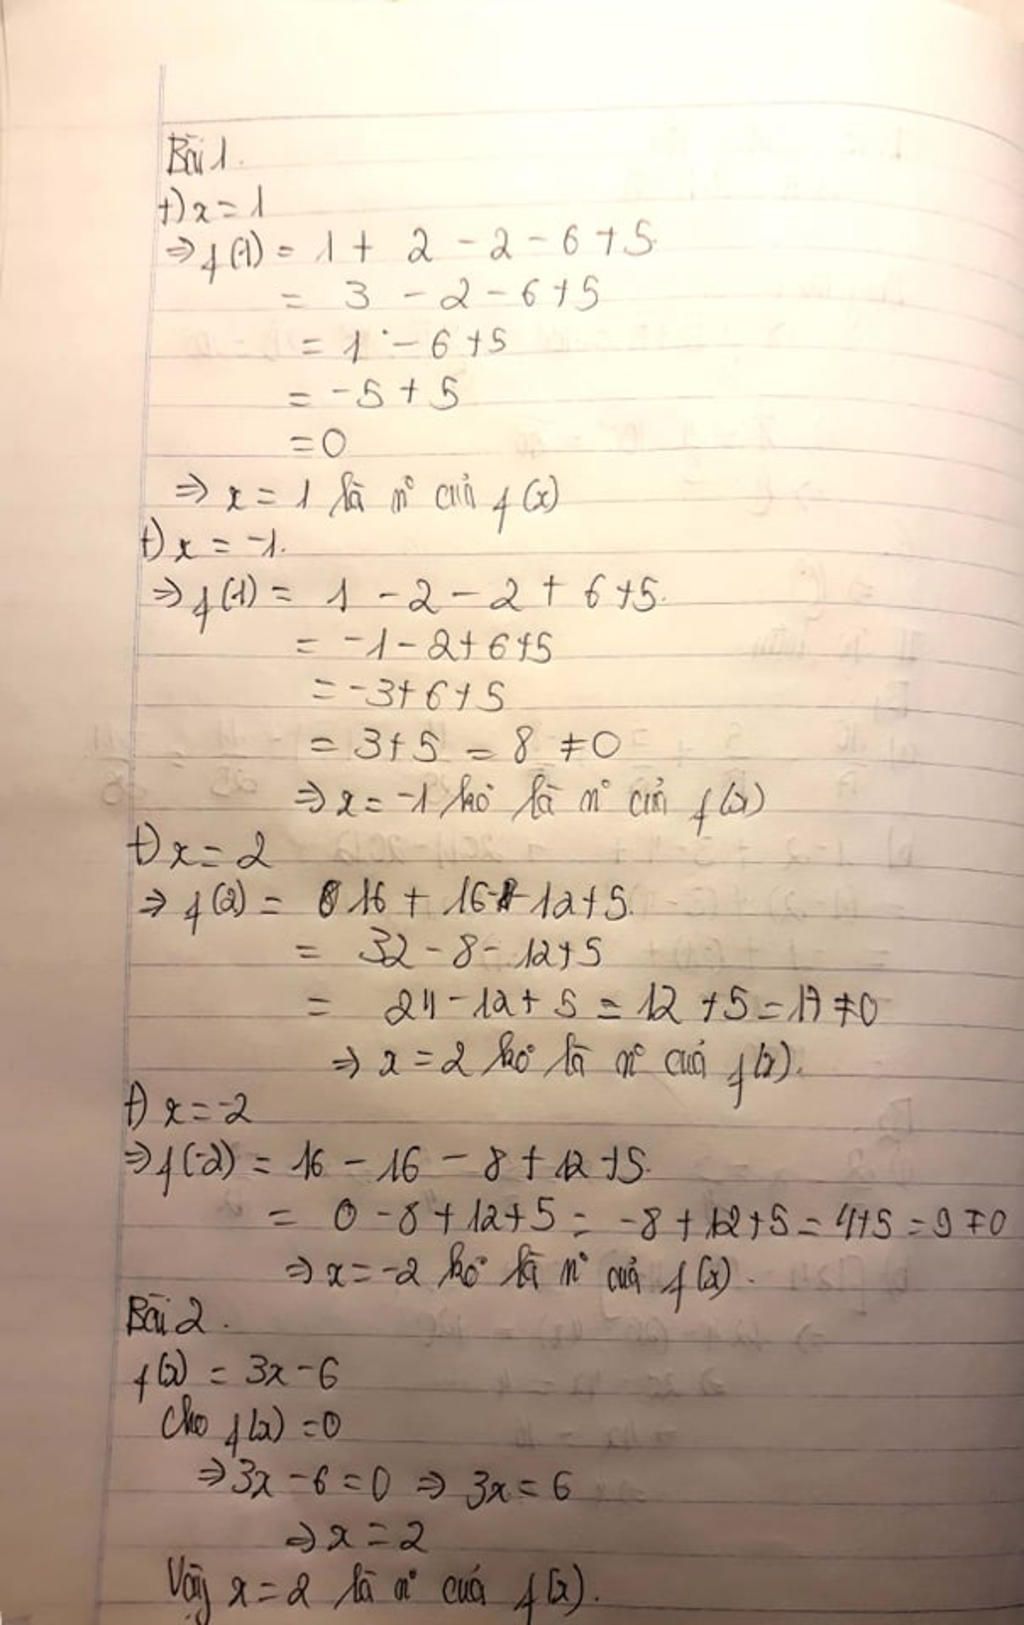 Bài 1.
+) x = 1
⇒ f(1) = 1 + 2 - 2 - 6 + 5
= 3 - 2 - 6 + 5
= 1 - 6 + 5
= -5 + 5
= 0
⇒ x = 1 là n° của f(x)
+) x = -1.
⇒ f(-1) = 1 - 2 - 2 + 6 + 5.
= -1 - 2 + 6 + 5
= -3 + 6 + 5
= 3 + 5 = 8 ≠ 0
⇒ x = -1 ko là n° của f(x)
+) x = 2
⇒ f(2) = 16 + 16 - 8 - 12 + 5.
= 32 - 8 - 12 + 5
= 24 - 12 + 5 = 12 + 5 = 17 ≠ 0
⇒ x = 2 ko là n° của f(x).
+) x = -2
⇒ f(-2) = 16 - 16 - 8 + 12 + 5.
= 0 - 8 + 12 + 5 = -8 + 12 + 5 = 4 + 5 = 9 ≠ 0
⇒ x = -2 ko là n° của f(x).
Bài 2.
f(x) = 3x - 6
Cho f(x) = 0
⇒ 3x - 6 = 0 ⇒ 3x = 6
⇒ x = 2
Vậy x = 2 là n° của f(x).